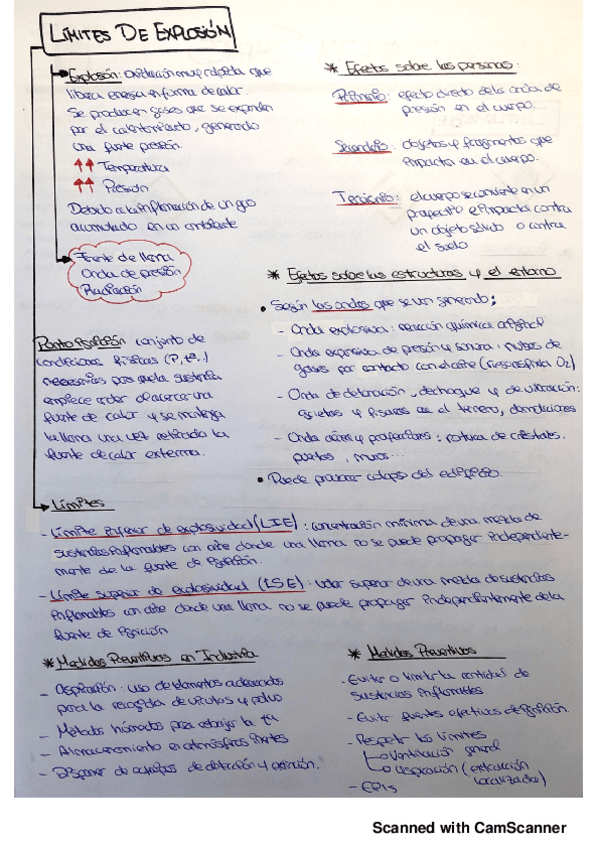 LÍMITES DE EXPLOSIÓN
Explosión: oxidación muy rápida que
libera energía en forma de calor.
Se producen gases que se expanden
por el calentamiento, generando
una fuerte presión.
↑↑ Temperatura
↑↑ Presión
Debido a la inflamación de un gas
acumulado en un continente
Frente de llama
Onda de presión
Radiación
Punto ignición conjunto de
condiciones físicas (P, tª,)
necesarias para que la sustancia
empiece arder al acercar una
fuente de calor y se mantenga
la llama una vez retirada la
fuente de calor externa.
* Efectos sobre las personas:
Primario: efecto directo de la onda de
presión en el cuerpo.
Secundario: objetos y fragmentos que
impactan en el cuerpo.
Terciario: el cuerpo se convierte en un
proyectil e impacta contra
un objeto sólido o contra
el suelo
* Efectos sobre las estructuras y el entorno
• Según las ondas que se van generando:
- Onda explosiva: reacción química original
- Onda expansiva de presión y sonora:
gases por contacto con el aire (O₂)
- Onda de detonación, de choque y de vibración:
grietas y fisuras en el terreno, demoliciones
- Onda aérea y proyecciones: rotura de cristales,
puertas, muros...
• Puede provocar colapso del edificio.
Límites
- Límite inferior de explosividad (LIE): concentración mínima de una mezcla de
sustancias inflamables con aire donde una llama no se puede propagar independiente-
mente de la fuente de ignición.
- Límite superior de explosividad (LSE): valor superior de una mezcla de sustancias
inflamables con aire donde una llama no se puede propagar independientemente de la
fuente de ignición
* Medidas Preventivas en Industria
- Aspiración: uso de elementos adecuados
para la recogida de virutas y polvo
- Métodos húmedos para rebajar la tª
- Almacenamiento en atmósferas inertes
- Disponer de equipos de detección y extinción.
* Medidas Preventivas
- Evitar o limitar la cantidad de
sustancias inflamables
- Evitar fuentes efectivas de ignición.
- Respetar los límites
Ventilación general
aspiración (extracción
localizada)
- EPIs
Scanned with CamScanner